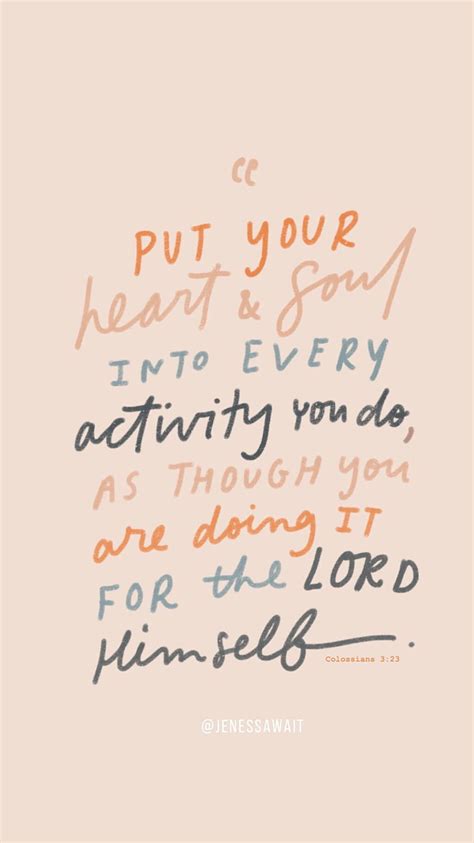 “
PUT YOUR
heart & soul
INTO EVERY
activity you do,
AS THOUGH you
are doing IT
FOR the LORD
Himself.
Colossians 3:23
@JENESSAWAIT